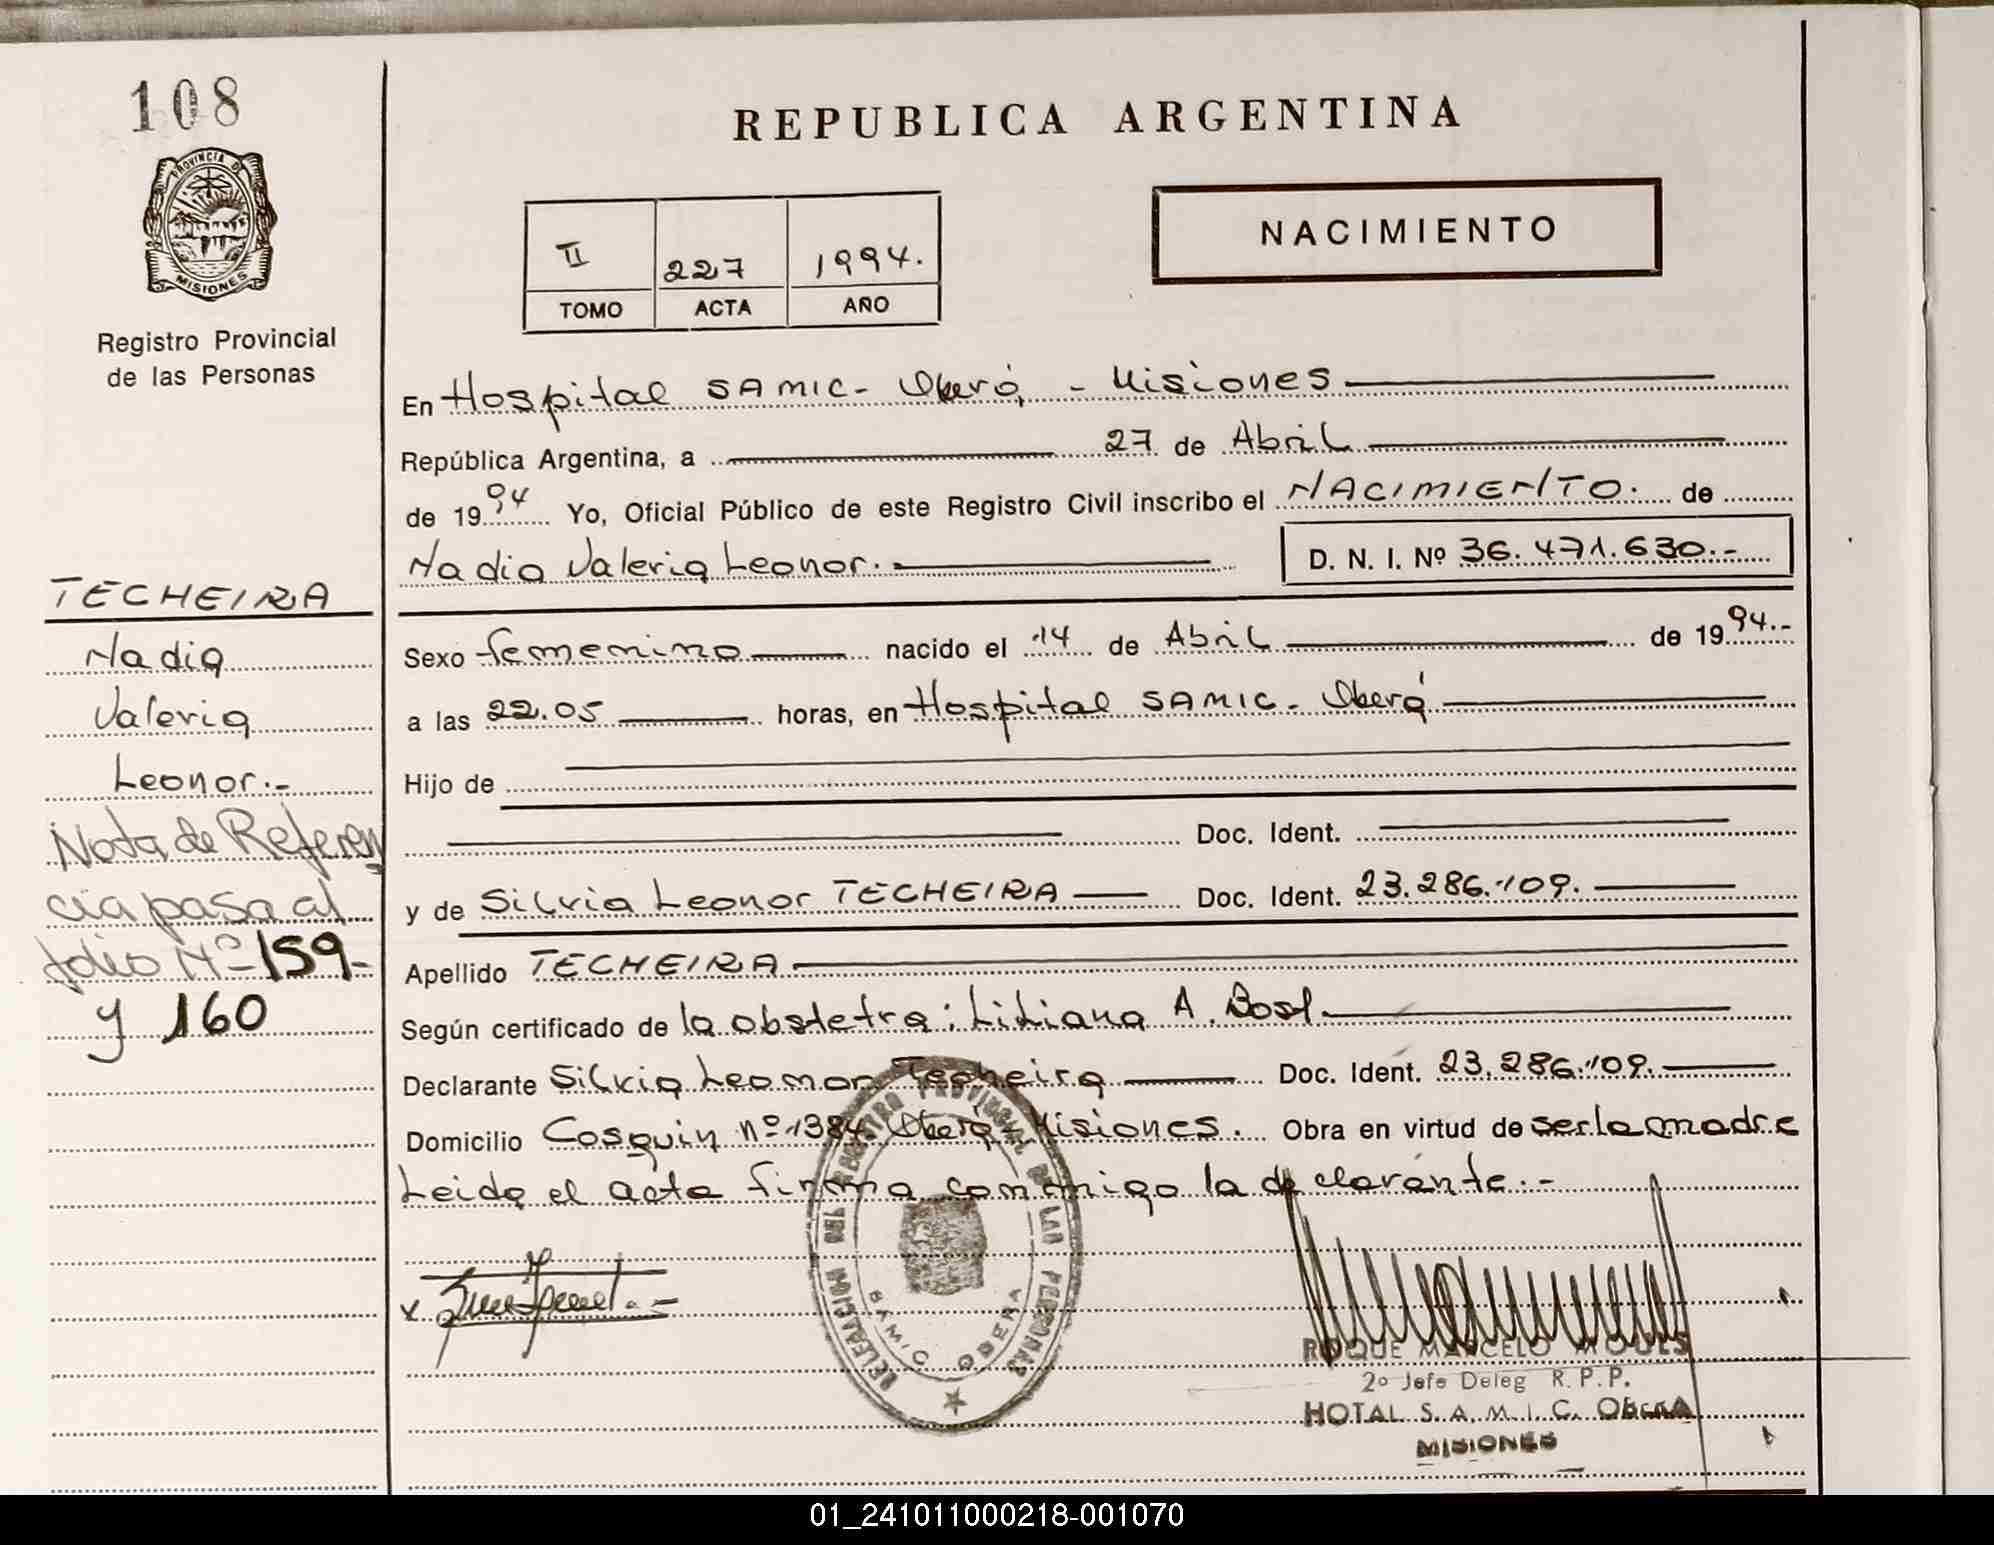 108
PROVINCIA DE
MISIONES
Registro Provincial
de las Personas
TECHEIRA
Nadia
Valeria
Leonor.-
Nota de Referen
cia pasa al
folio Nº 159-
y 160
REPUBLICA ARGENTINA
NACIMIENTO
II 227 1994.
TOMO ACTA AÑO
En Hospital SAMIC- Oberá, - Misiones
República Argentina, a 27 de Abril
de 1994 Yo, Oficial Público de este Registro Civil inscribo el NACIMIENTO. de
Nadia Valeria Leonor. D. N. I. Nº 36.471.630.-
Sexo femenino nacido el 14 de Abril de 1994.-
a las 22.05 horas, en Hospital SAMIC- Oberá
Hijo de
Doc. Ident.
y de Silvia Leonor TECHEIRA Doc. Ident. 23.286.109.
Apellido TECHEIRA
Según certificado de la obstetra: Liliana A. Bost.
Declarante Silvia Leonor Techeira Doc. Ident. 23.286.109.
Domicilio Cosquin nº 1384 Oberá Misiones. Obra en virtud de ser la madre
Leida el acta firma conmigo la declarante.-
DELEGACION DEL REGISTRO PROVINCIAL DE LAS PERSONAS
SAMIC OBERA
ROQUE MARCELO
2º Jefe Deleg R. P. P.
HOTAL S. A. M. I. C. Oberá
MISIONES
01_241011000218-001070